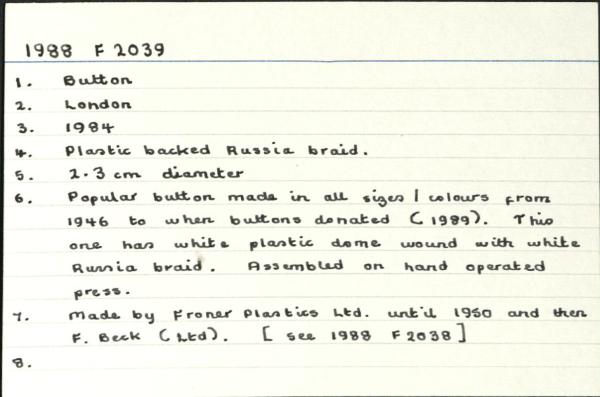 1988 F 2039
1. Button
2. London
3. 1984
4. Plastic backed Russia braid.
5. 2.3 cm diameter
6. Popular button made in all sizes / colours from
1946 to when buttons donated (1989). This
one has white plastic dome wound with white
Russia braid. Assembled on hand operated
press.
7. Made by Froner Plastics Ltd. until 1950 and then
F. Beck (Ltd). [see 1988 F 2038]
8.